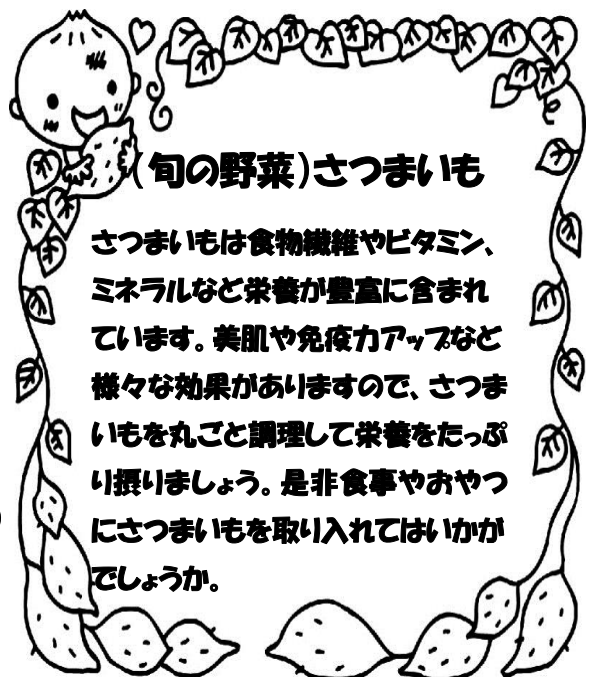 (旬の野菜)さつまいも
さつまいもは食物繊維やビタミン、
ミネラルなど栄養が豊富に含まれ
ています。美肌や免疫力アップなど
様々な効果がありますので、さつま
いもを丸ごと調理して栄養をたっぷ
り摂りましょう。是非食事やおやつ
にさつまいもを取り入れてはいかが
でしょうか。